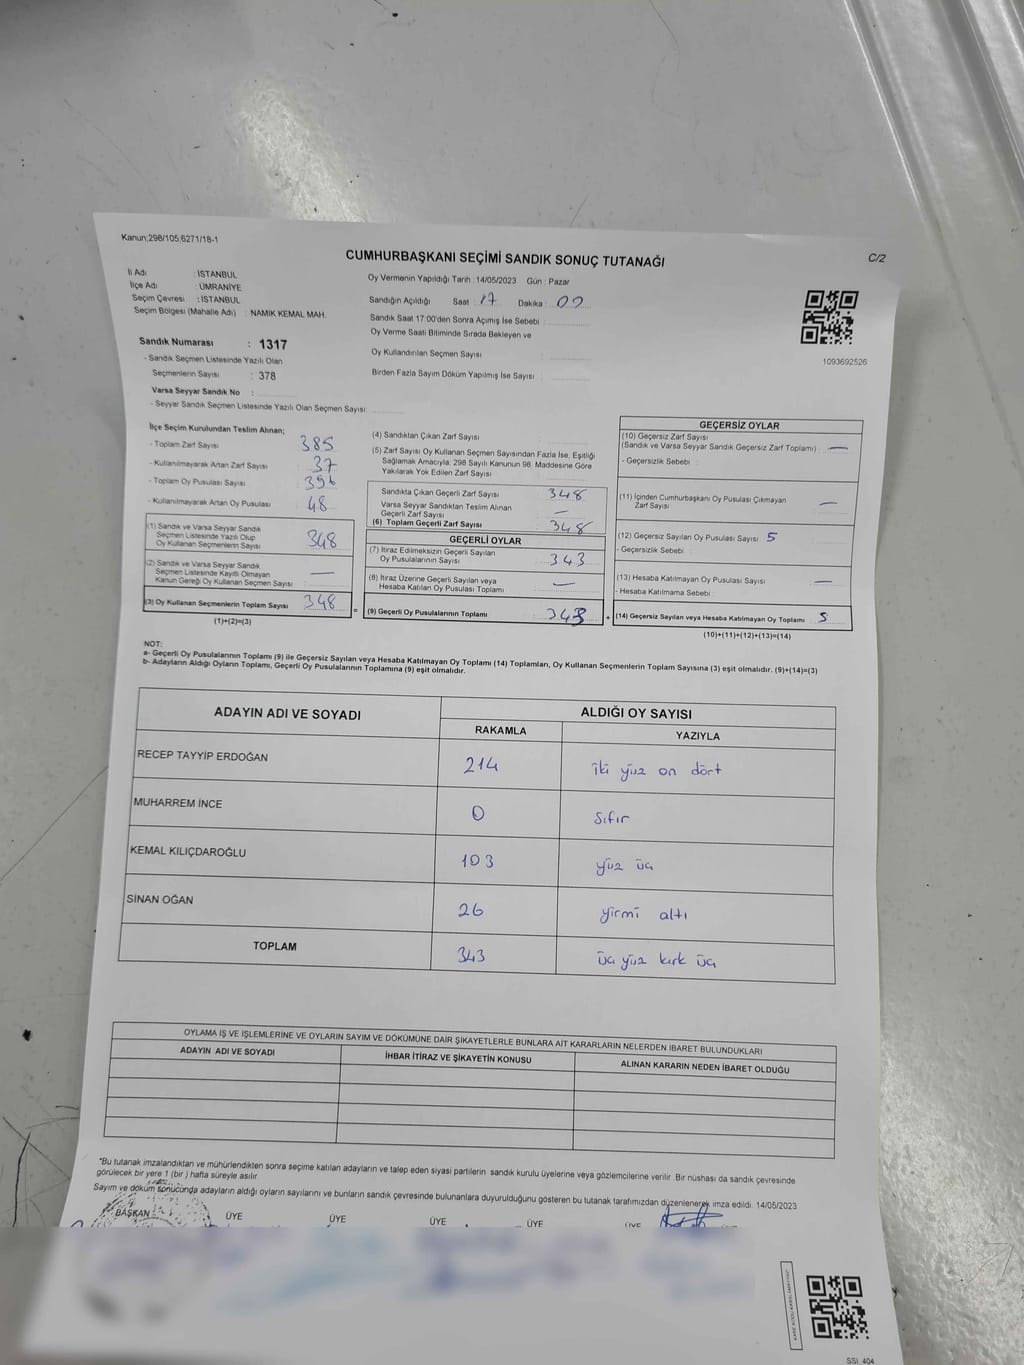 Kanun;298/105;6271/18-1
CUMHURBAŞKANI SEÇİMİ SANDIK SONUÇ TUTANAĞI
C/2
İl Adı : İSTANBUL
İlçe Adı : ÜMRANİYE
Seçim Çevresi : İSTANBUL
Seçim Bölgesi (Mahalle Adı) : NAMIK KEMAL MAH.
Sandık Numarası : 1317
- Sandık Seçmen Listesinde Yazılı Olan
Seçmenlerin Sayısı : 378
Varsa Seyyar Sandık No :
- Seyyar Sandık Seçmen Listesinde Yazılı Olan Seçmen Sayısı:
Oy Vermenin Yapıldığı Tarih : 14/05/2023 Gün : Pazar
Sandığın Açıldığı Saat : 17 Dakika : 00
Sandık Saat 17:00'den Sonra Açımış İse Sebebi :
Oy Verme Saati Bitiminde Sırada Bekleyen ve
Oy Kullandırılan Seçmen Sayısı :
Birden Fazla Sayım Döküm Yapılmış İse Sayısı :
1093692526
İlçe Seçim Kurulundan Teslim Alınan;
- Toplam Zarf Sayısı : 385
- Kullanılmayarak Artan Zarf Sayısı : 37
- Toplam Oy Pusulası Sayısı : 396
- Kullanılmayarak Artan Oy Pusulası : 48
(1) Sandık ve Varsa Seyyar Sandık
Seçmen Listesinde Yazılı Olup
Oy Kullanan Seçmenlerin Sayısı : 348
(2) Sandık ve Varsa Seyyar Sandık
Seçmen Listesinde Kayıtlı Olmayan
Kanun Gereği Oy Kullanan Seçmen Sayısı : —
(3) Oy Kullanan Seçmenlerin Toplam Sayısı : 348
(1)+(2)=(3)
(4) Sandıktan Çıkan Zarf Sayısı :
(5) Zarf Sayısı Oy Kullanan Seçmen Sayısından Fazla İse, Eşitliği
Sağlamak Amacıyla; 298 Sayılı Kanunun 98. Maddesine Göre
Yakılarak Yok Edilen Zarf Sayısı :
Sandıkta Çıkan Geçerli Zarf Sayısı : 348
Varsa Seyyar Sandıktan Teslim Alınan
Geçerli Zarf Sayısı : —
(6) Toplam Geçerli Zarf Sayısı : 348
GEÇERLİ OYLAR
(7) İtiraz Edilmeksizin Geçerli Sayılan
Oy Pusulalarının Sayısı : 343
(8) İtiraz Üzerine Geçerli Sayılan veya
Hesaba Katılan Oy Pusulası Toplamı : —
= (9) Geçerli Oy Pusulalarının Toplamı : 343
GEÇERSİZ OYLAR
(10) Geçersiz Zarf Sayısı
(Sandık ve Varsa Seyyar Sandık Geçersiz Zarf Toplamı) : —
- Geçersizlik Sebebi :
(11) İçinden Cumhurbaşkanı Oy Pusulası Çıkmayan
Zarf Sayısı : —
(12) Geçersiz Sayılan Oy Pusulası Sayısı : 5
- Geçersizlik Sebebi :
(13) Hesaba Katılmayan Oy Pusulası Sayısı : —
- Hesaba Katılmama Sebebi :
+ (14) Geçersiz Sayılan veya Hesaba Katılmayan Oy Toplamı : 5
(10)+(11)+(12)+(13)=(14)
NOT:
a- Geçerli Oy Pusulalarının Toplamı (9) ile Geçersiz Sayılan veya Hesaba Katılmayan Oy Toplamı (14) Toplamları, Oy Kullanan Seçmenlerin Toplam Sayısına (3) eşit olmalıdır. (9)+(14)=(3)
b- Adayların Aldığı Oyların Toplamı, Geçerli Oy Pusulalarının Toplamına (9) eşit olmalıdır.
ADAYIN ADI VE SOYADI
ALDIĞI OY SAYISI
RAKAMLA YAZIYLA
RECEP TAYYİP ERDOĞAN 214 iki yüz on dört
MUHARREM İNCE 0 sıfır
KEMAL KILIÇDAROĞLU 103 yüz üç
SİNAN OĞAN 26 yirmi altı
TOPLAM 343 üç yüz kırk üç
OYLAMA İŞ VE İŞLEMLERİNE VE OYLARIN SAYIM VE DÖKÜMÜNE DAİR ŞİKAYETLERLE BUNLARA AİT KARARLARIN NELERDEN İBARET BULUNDUKLARI
ADAYIN ADI VE SOYADI İHBAR İTİRAZ VE ŞİKAYETİN KONUSU ALINAN KARARIN NEDEN İBARET OLDUĞU
*Bu tutanak imzalandıktan ve mühürlendikten sonra seçime katılan adayların ve talep eden siyasi partilerin sandık kurulu üyelerine veya gözlemcilerine verilir. Bir nüshası da sandık çevresinde
görülecek bir yere 1 (bir ) hafta süreyle asılır.
Sayım ve döküm sonucunda adayların aldığı oyların sayılarını ve bunların sandık çevresinde bulunanlara duyurulduğunu gösteren bu tutanak tarafımızdan düzenlenerek imza edildi. 14/05/2023
BAŞKAN ÜYE ÜYE ÜYE ÜYE ÜYE
SSI 404